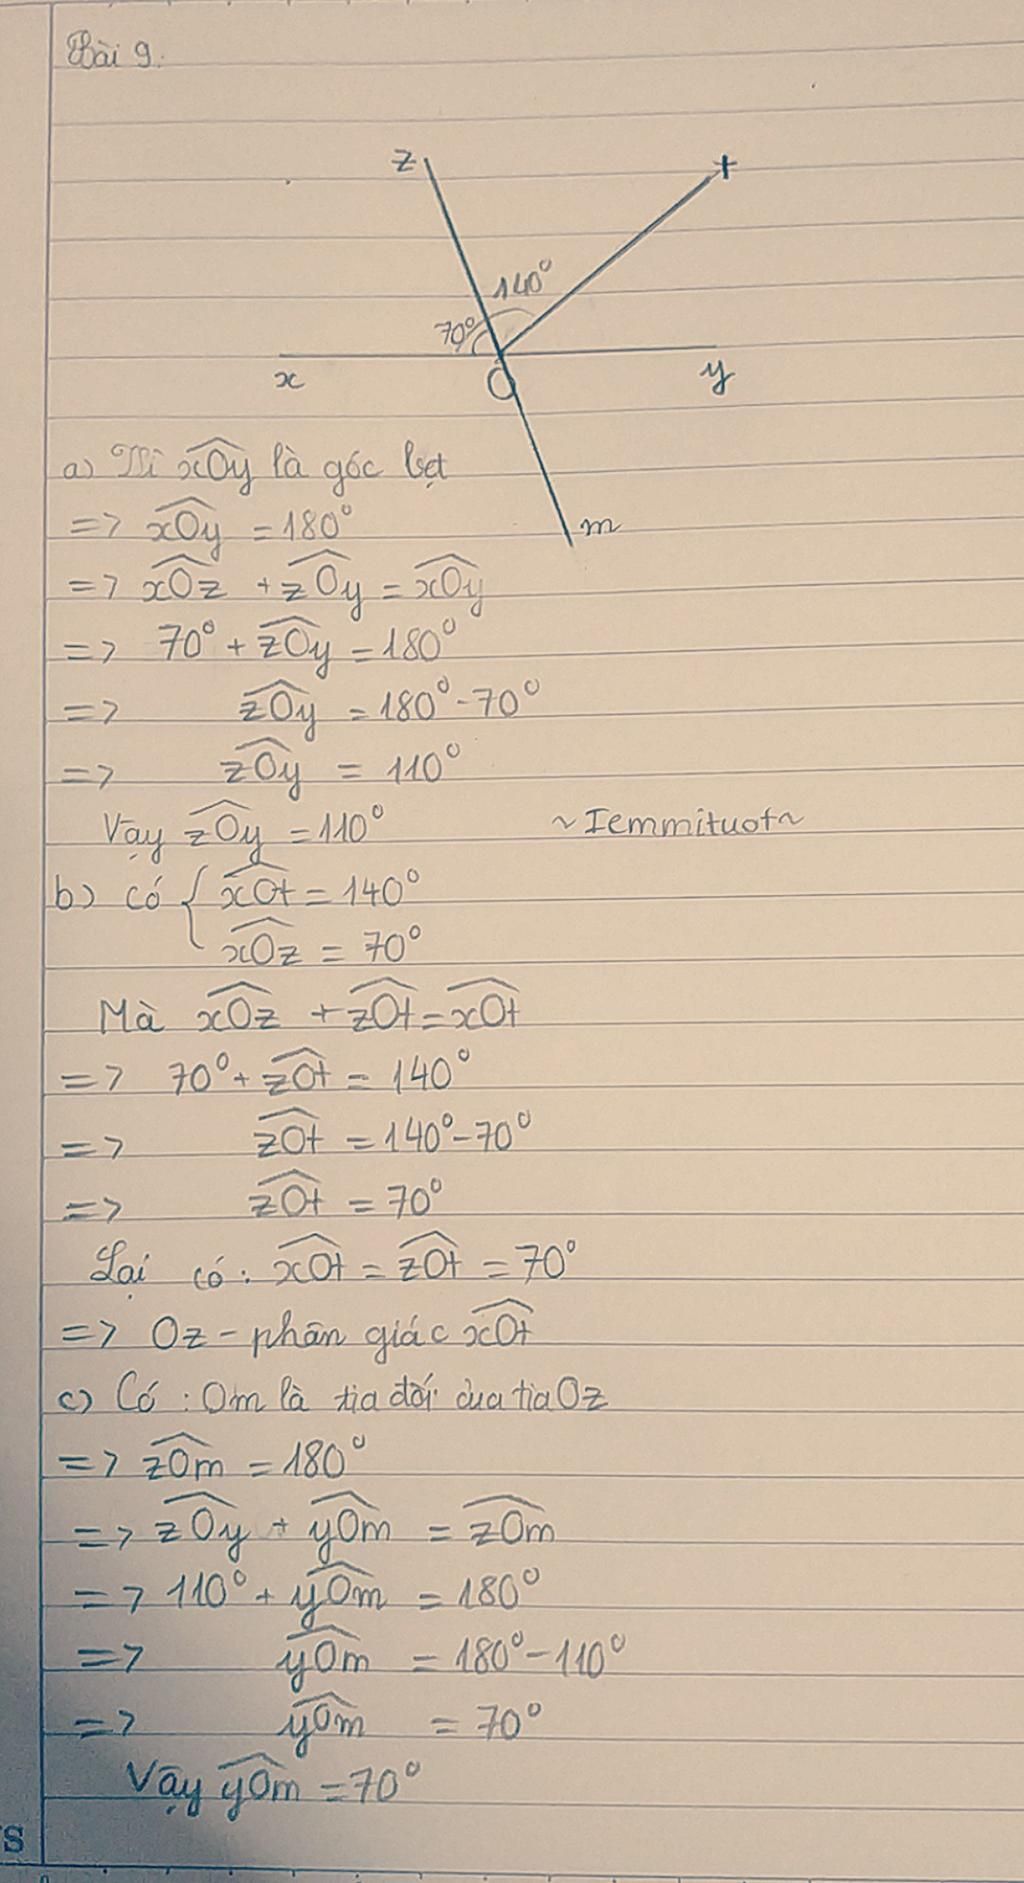 Bài 9.
z
t
140°
70°
x
O
y
m
a) Vì xOy là góc bẹt
=> xOy = 180°
=> xOz + zOy = xOy
=> 70° + zOy = 180°
=> zOy = 180° - 70°
=> zOy = 110°
Vậy zOy = 110°
~Iemmituot~
b) Có { xOt = 140°
xOz = 70°
Mà xOz + zOt = xOt
=> 70° + zOt = 140°
=> zOt = 140° - 70°
=> zOt = 70°
Lại có: xOt = zOt = 70°
=> Oz - phân giác xOt
c) Có: Om là tia đối của tia Oz
=> zOm = 180°
=> zOy + yOm = zOm
=> 110° + yOm = 180°
=> yOm = 180° - 110°
=> yOm = 70°
Vậy yOm = 70°
S